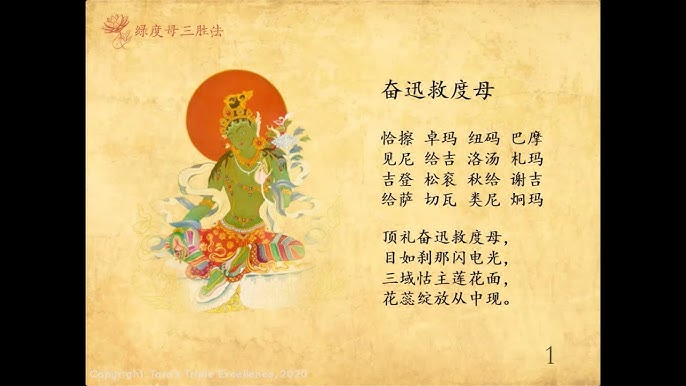 绿度母三胜法
奋迅救度母
恰擦 卓玛 纽码 巴摩
见尼 给吉 洛汤 札玛
吉登 松衮 秋给 谢吉
给萨 切瓦 类尼 炯玛
顶礼奋迅救度母，
目如刹那闪电光，
三域怙主莲花面，
花蕊绽放从中现。
Copyright Tara's Triple Excellence, 2020
1